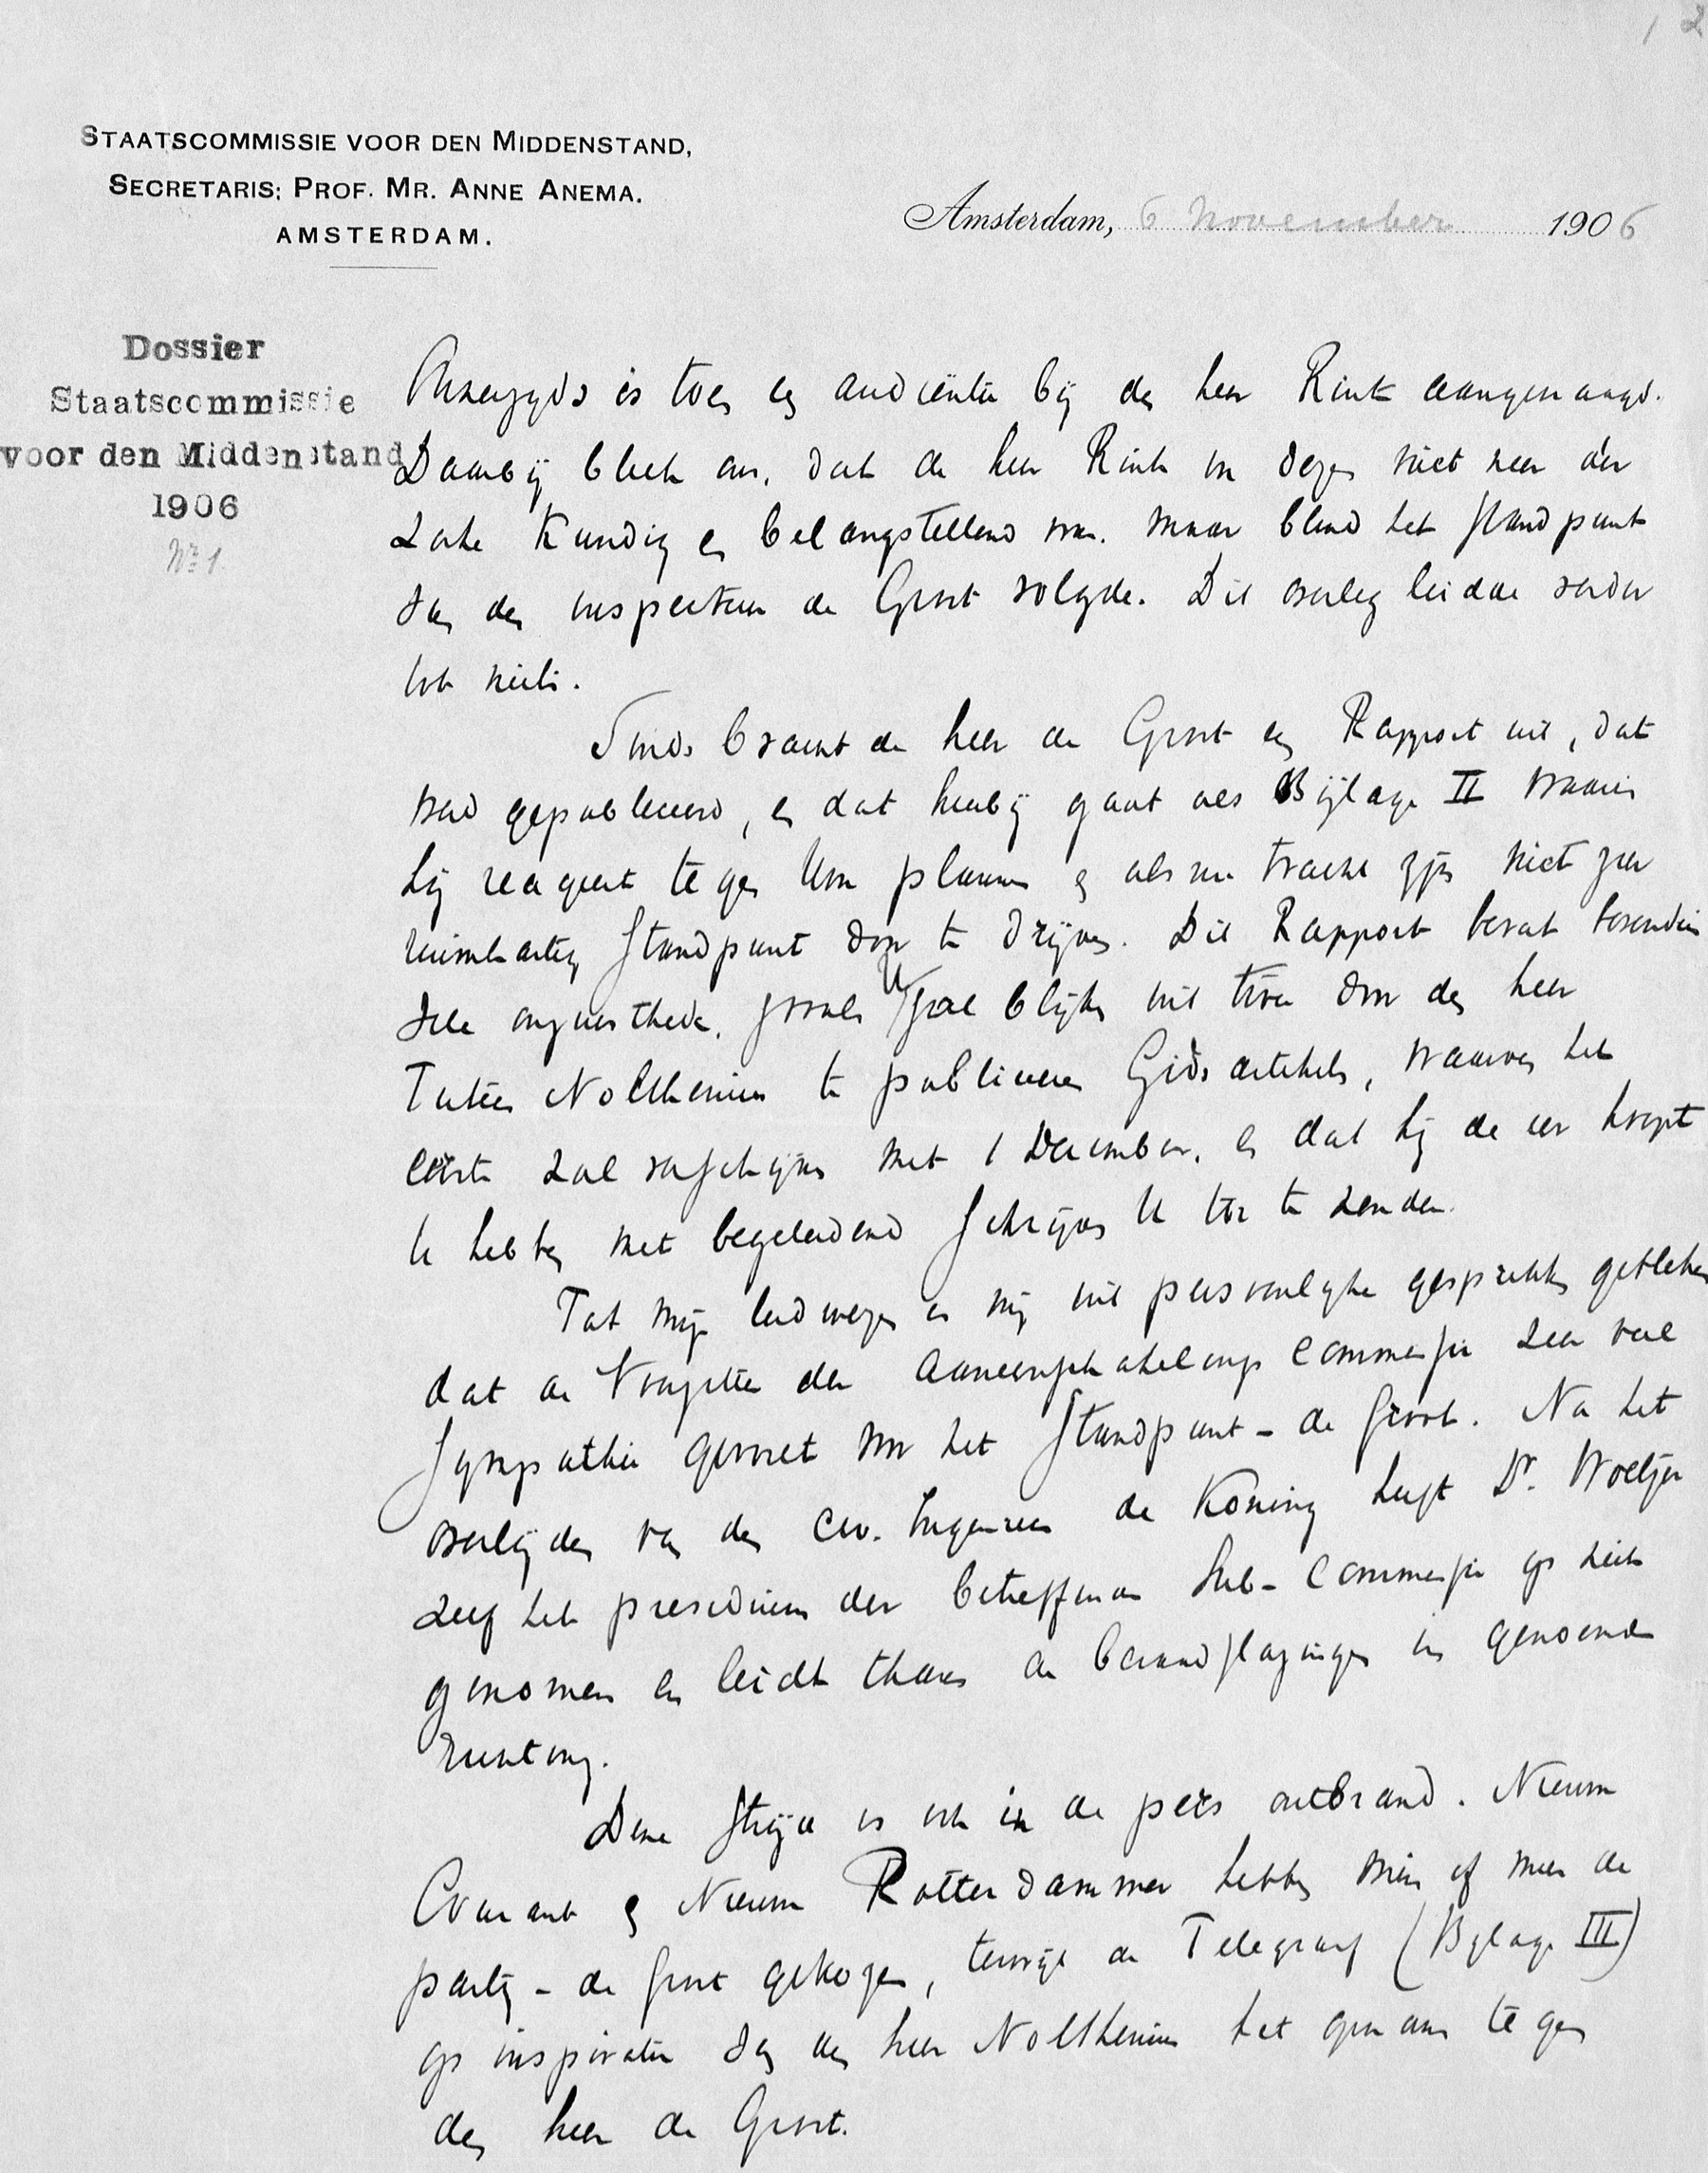 1 2
STAATSCOMMISSIE VOOR DEN MIDDENSTAND,
SECRETARIS: PROF. MR. ANNE ANEMA.
AMSTERDAM.
Amsterdam, 6 November 1906
Dossier
Staatscommissie
voor den Middenstand
1906
No 1.
is toen een audiëntie bij den heer Rink aangevraagd.
Daarbij bleek ons, dat de heer Rink in dezen niet zeer ter
zake kundig en belangstellend was, maar blind het standpunt
van den inspecteur de Groot volgde. Dit overleg leidde verder
tot niets.
Sinds bracht de heer de Groot een Rapport uit, dat
werd gepubliceerd, en dat hierbij gaat als Bijlage II waarin
hij reageert tegen Uw plannen en alsnu tracht zijn niet zeer
ruimhartig standpunt door te drijven. Dit Rapport bevat bovendien
vele onjuistheden, zooals U zal blijken uit twee door den heer
Tutein Nolthenius te publiceeren Gids artikels, waarvan het
eerste zal verschijnen met 1 December, en dat hij de eer hoopt
te hebben met begeleidend schrijven U toe te zenden.
Tot mijn leedwezen is mij uit persoonlijke gesprekken gebleken
dat de Voorzitter der Aaneenschakelings Commissie zeer veel
sympathie gevoelt voor het standpunt - de Groot. Na het
overlijden van den civ. Ingenieur de Koning heeft Dr. Woltjer
zelf het presidium der betreffende Sub-Commissie op zich
genomen en leidt thans de beraadslagingen in genoemde
richting.
Deze strijd is ook in de pers ontbrand. Nieuwe
Courant en Nieuwe Rotterdammer hebben min of meer de
partij - de Groot gekozen, terwijl de Telegraaf (Bijlage III)
op inspiratie van den heer Nolthenius het opnam tegen
den heer de Groot.